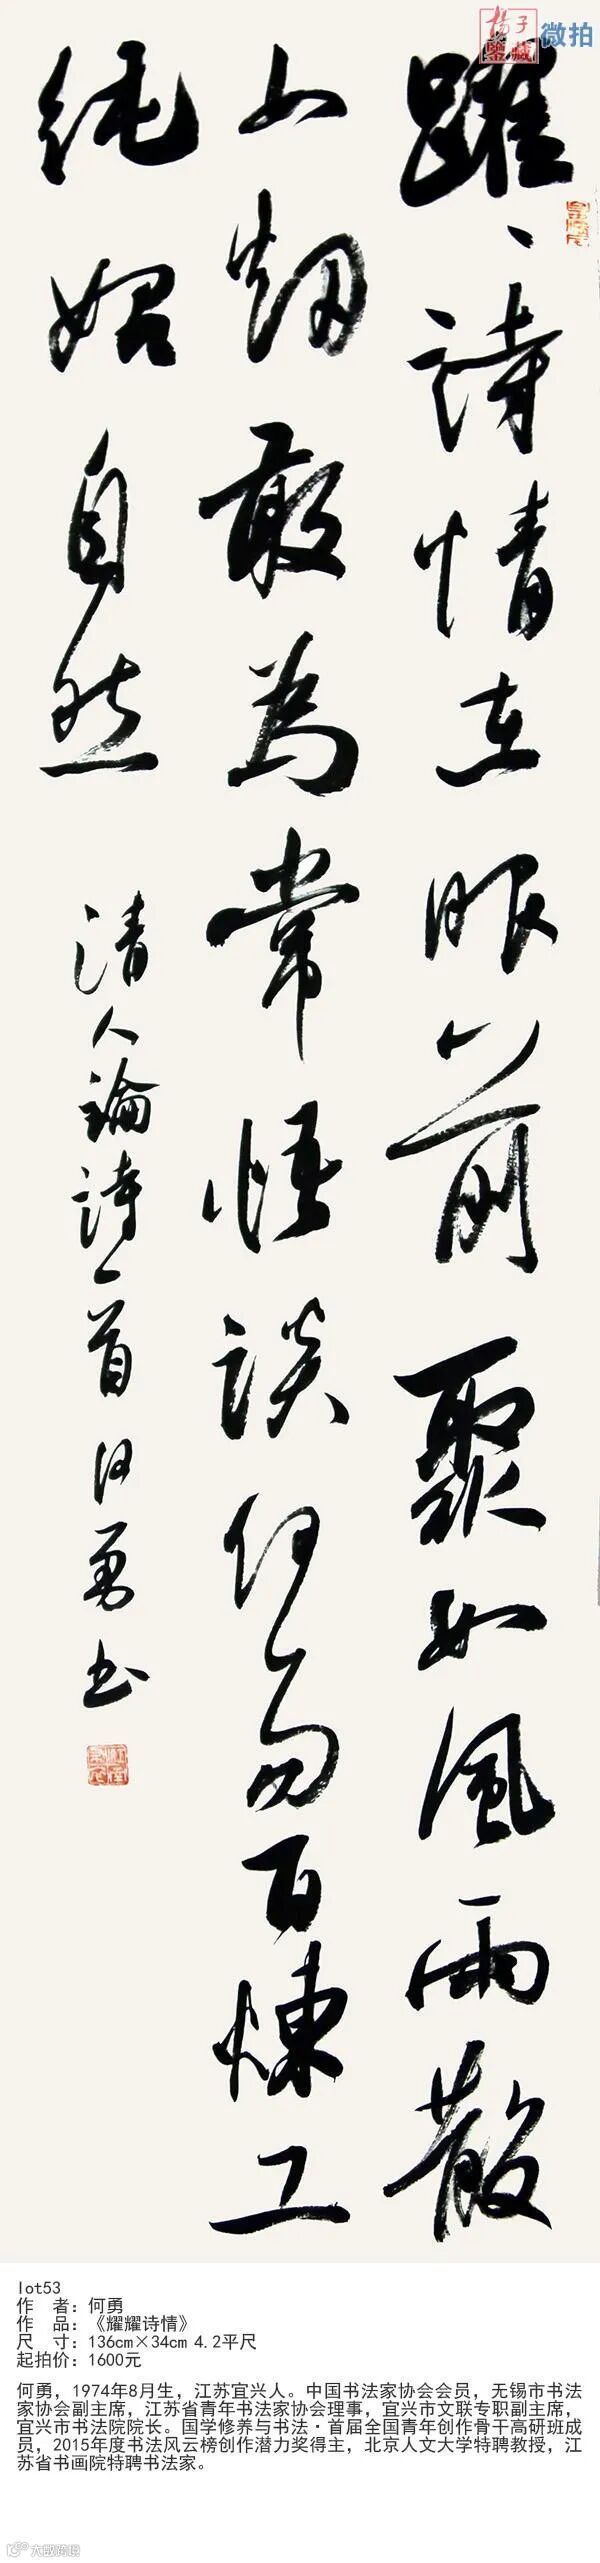 揚子
鑒藏
微拍
躍、詩情在眼前聚如風雨散
如烟敢為常語談何易百煉工
純始自然
清人論詩一首何勇書
lot53
作　者：何勇
作　品：《耀耀诗情》
尺　寸：136cm×34cm 4.2平尺
起拍价：1600元
何勇，1974年8月生，江苏宜兴人。中国书法家协会会员，无锡市书法
家协会副主席，江苏省青年书法家协会理事，宜兴市文联专职副主席，
宜兴市书法院院长。国学修养与书法·首届全国青年创作骨干高研班成
员，2015年度书法风云榜创作潜力奖得主，北京人文大学特聘教授，江
苏省书画院特聘书法家。
大数跨境